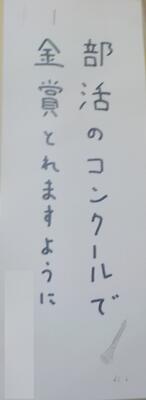 部活のコンクールで
金賞とれますように